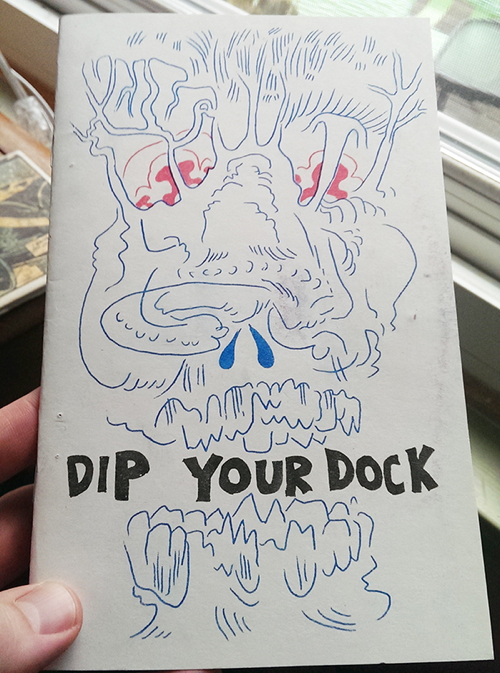 DIP YOUR DOCK